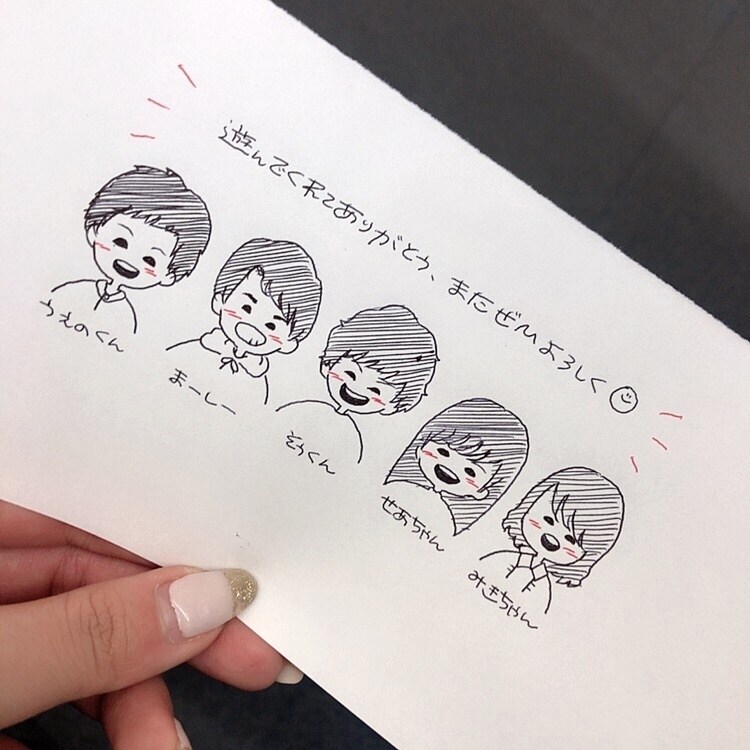 遊んでくれてありがとう、またぜひよろしく
うえのくん
まーしー
そうくん
せあちゃん
みきちゃん